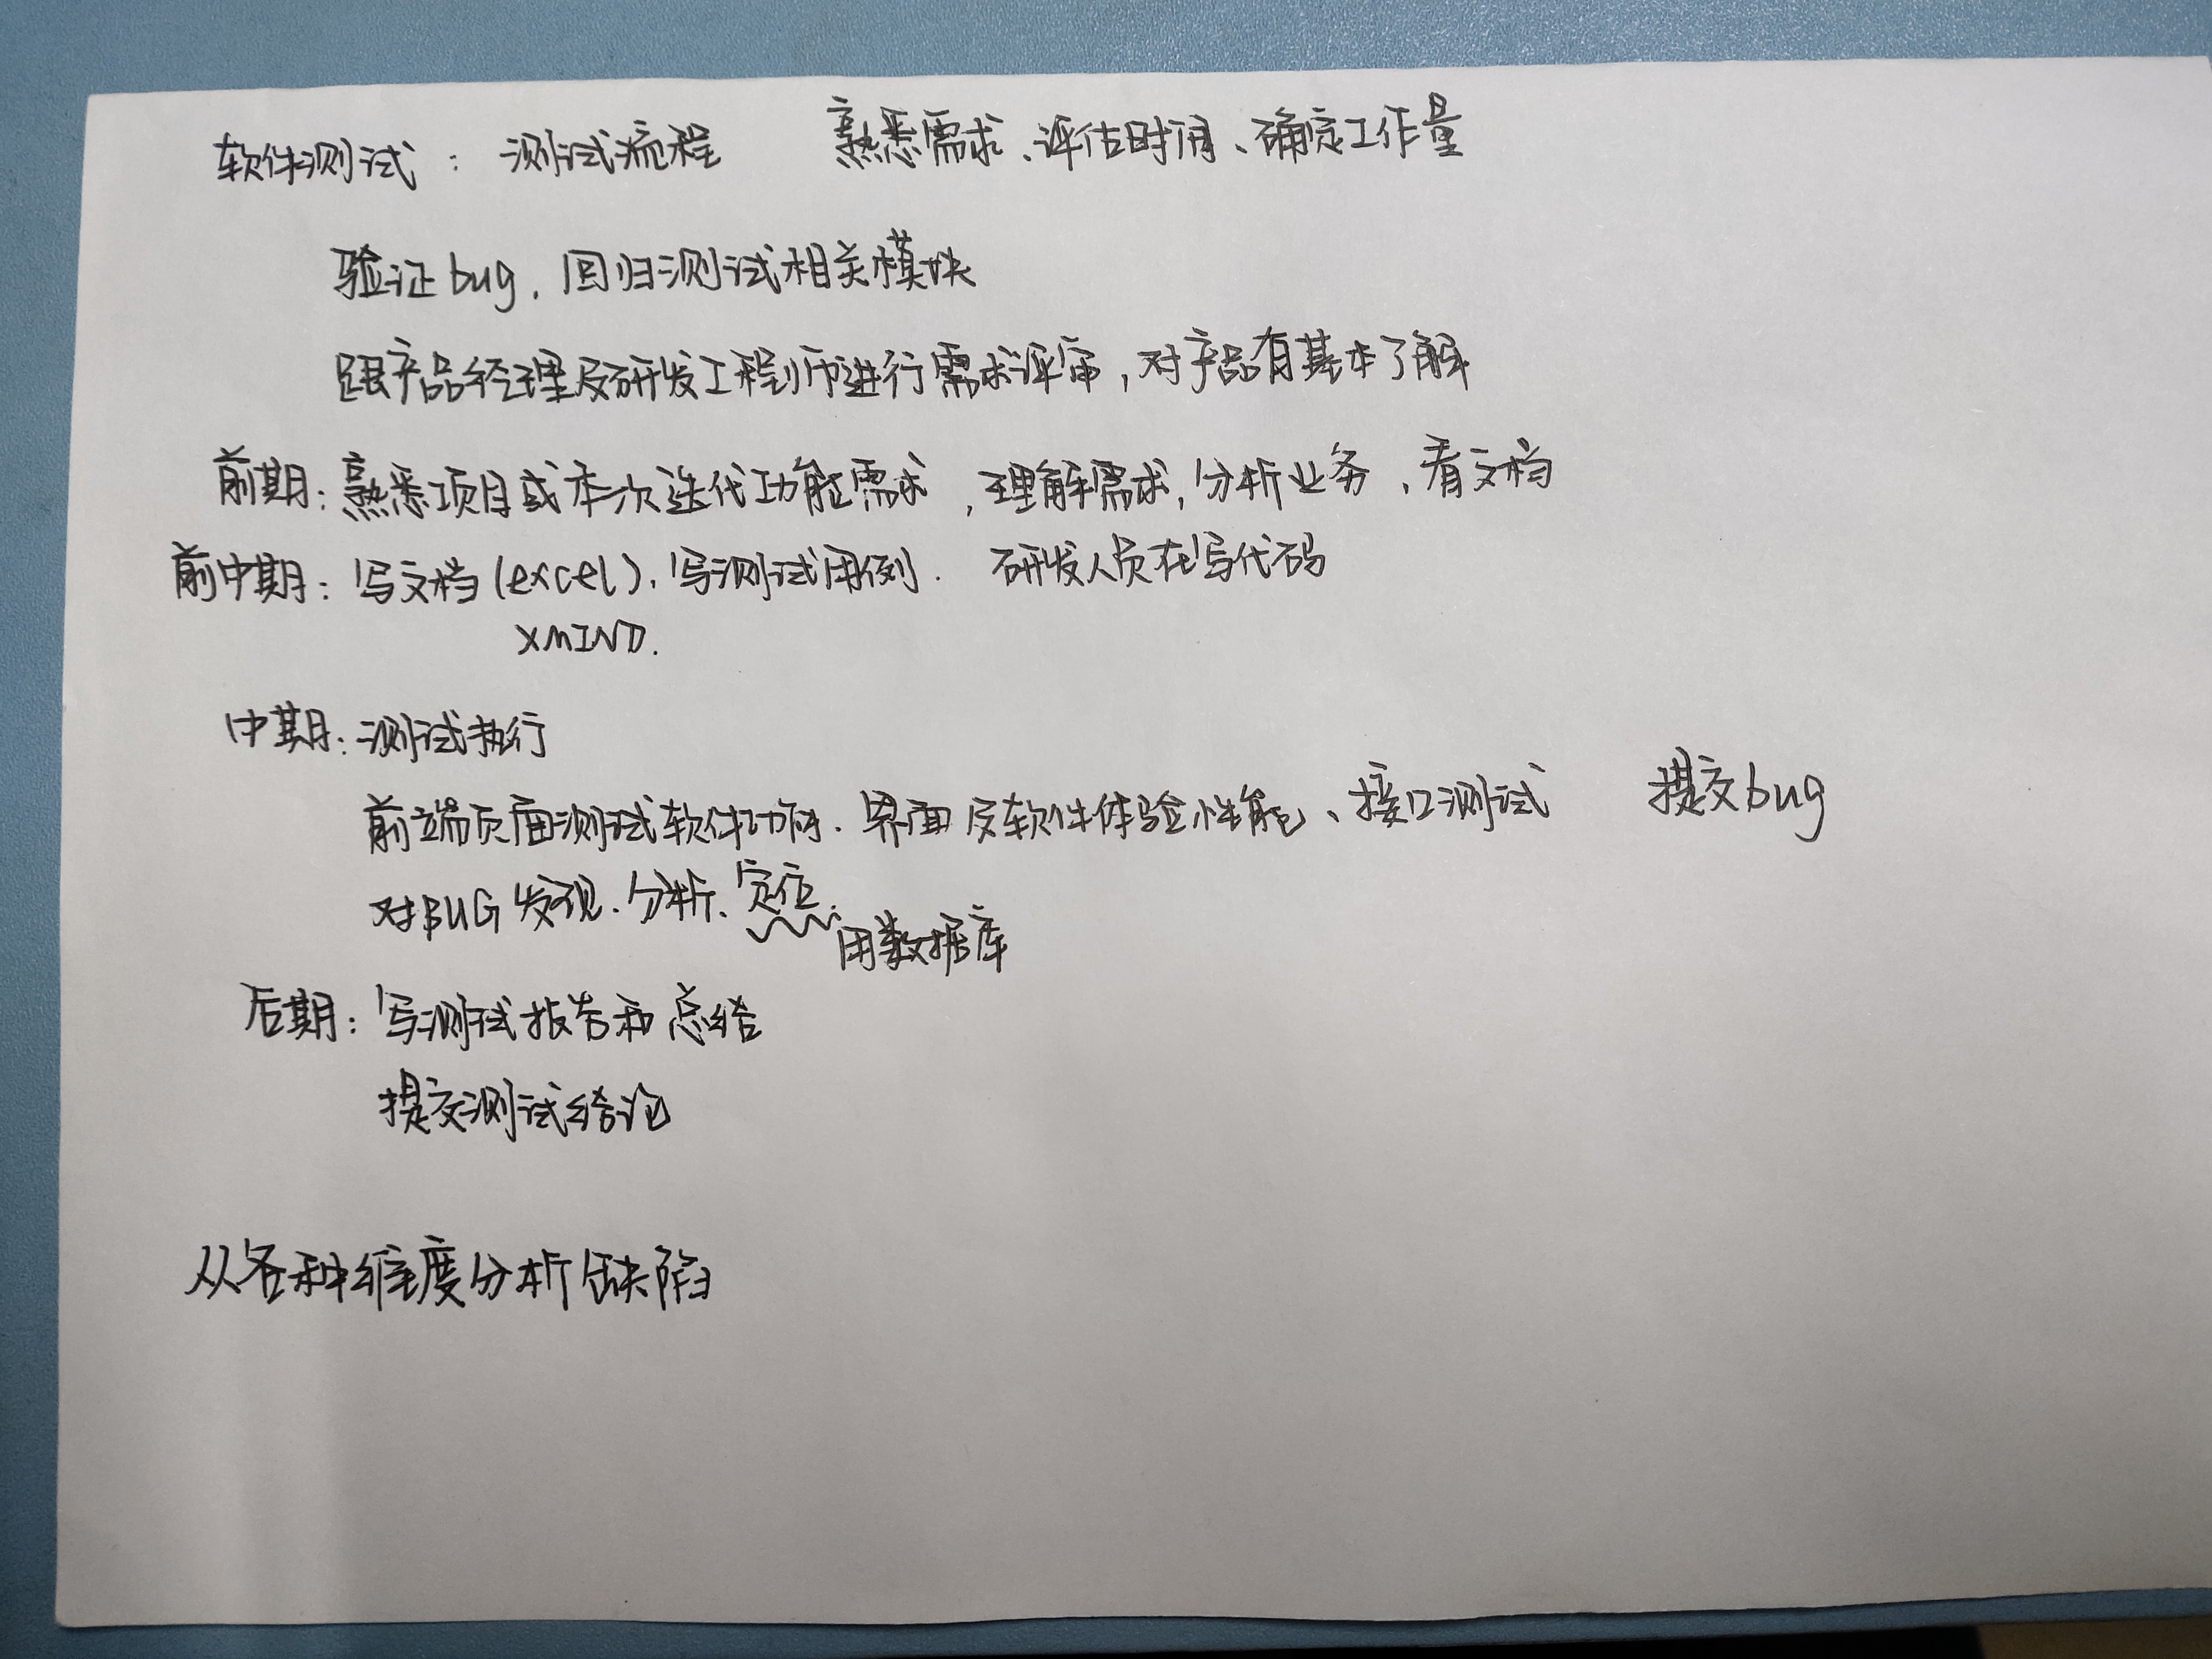 软件测试：测试流程 熟悉需求、评估时间、确定工作量
验证bug，回归测试相关模块
跟产品经理及研发工程师进行需求评审，对产品有基本了解
前期：熟悉项目或本次迭代功能需求，理解需求，分析业务、看文档
前中期：写文档(excel)，写测试用例. 研发人员在写代码
XMIND.
中期：测试执行
前端页面测试软件功能、界面及软件体验性能、接口测试 提交bug
对BUG发现、分析、定位.
用数据库
后期：写测试报告和总结
提交测试结论
从各种维度分析缺陷